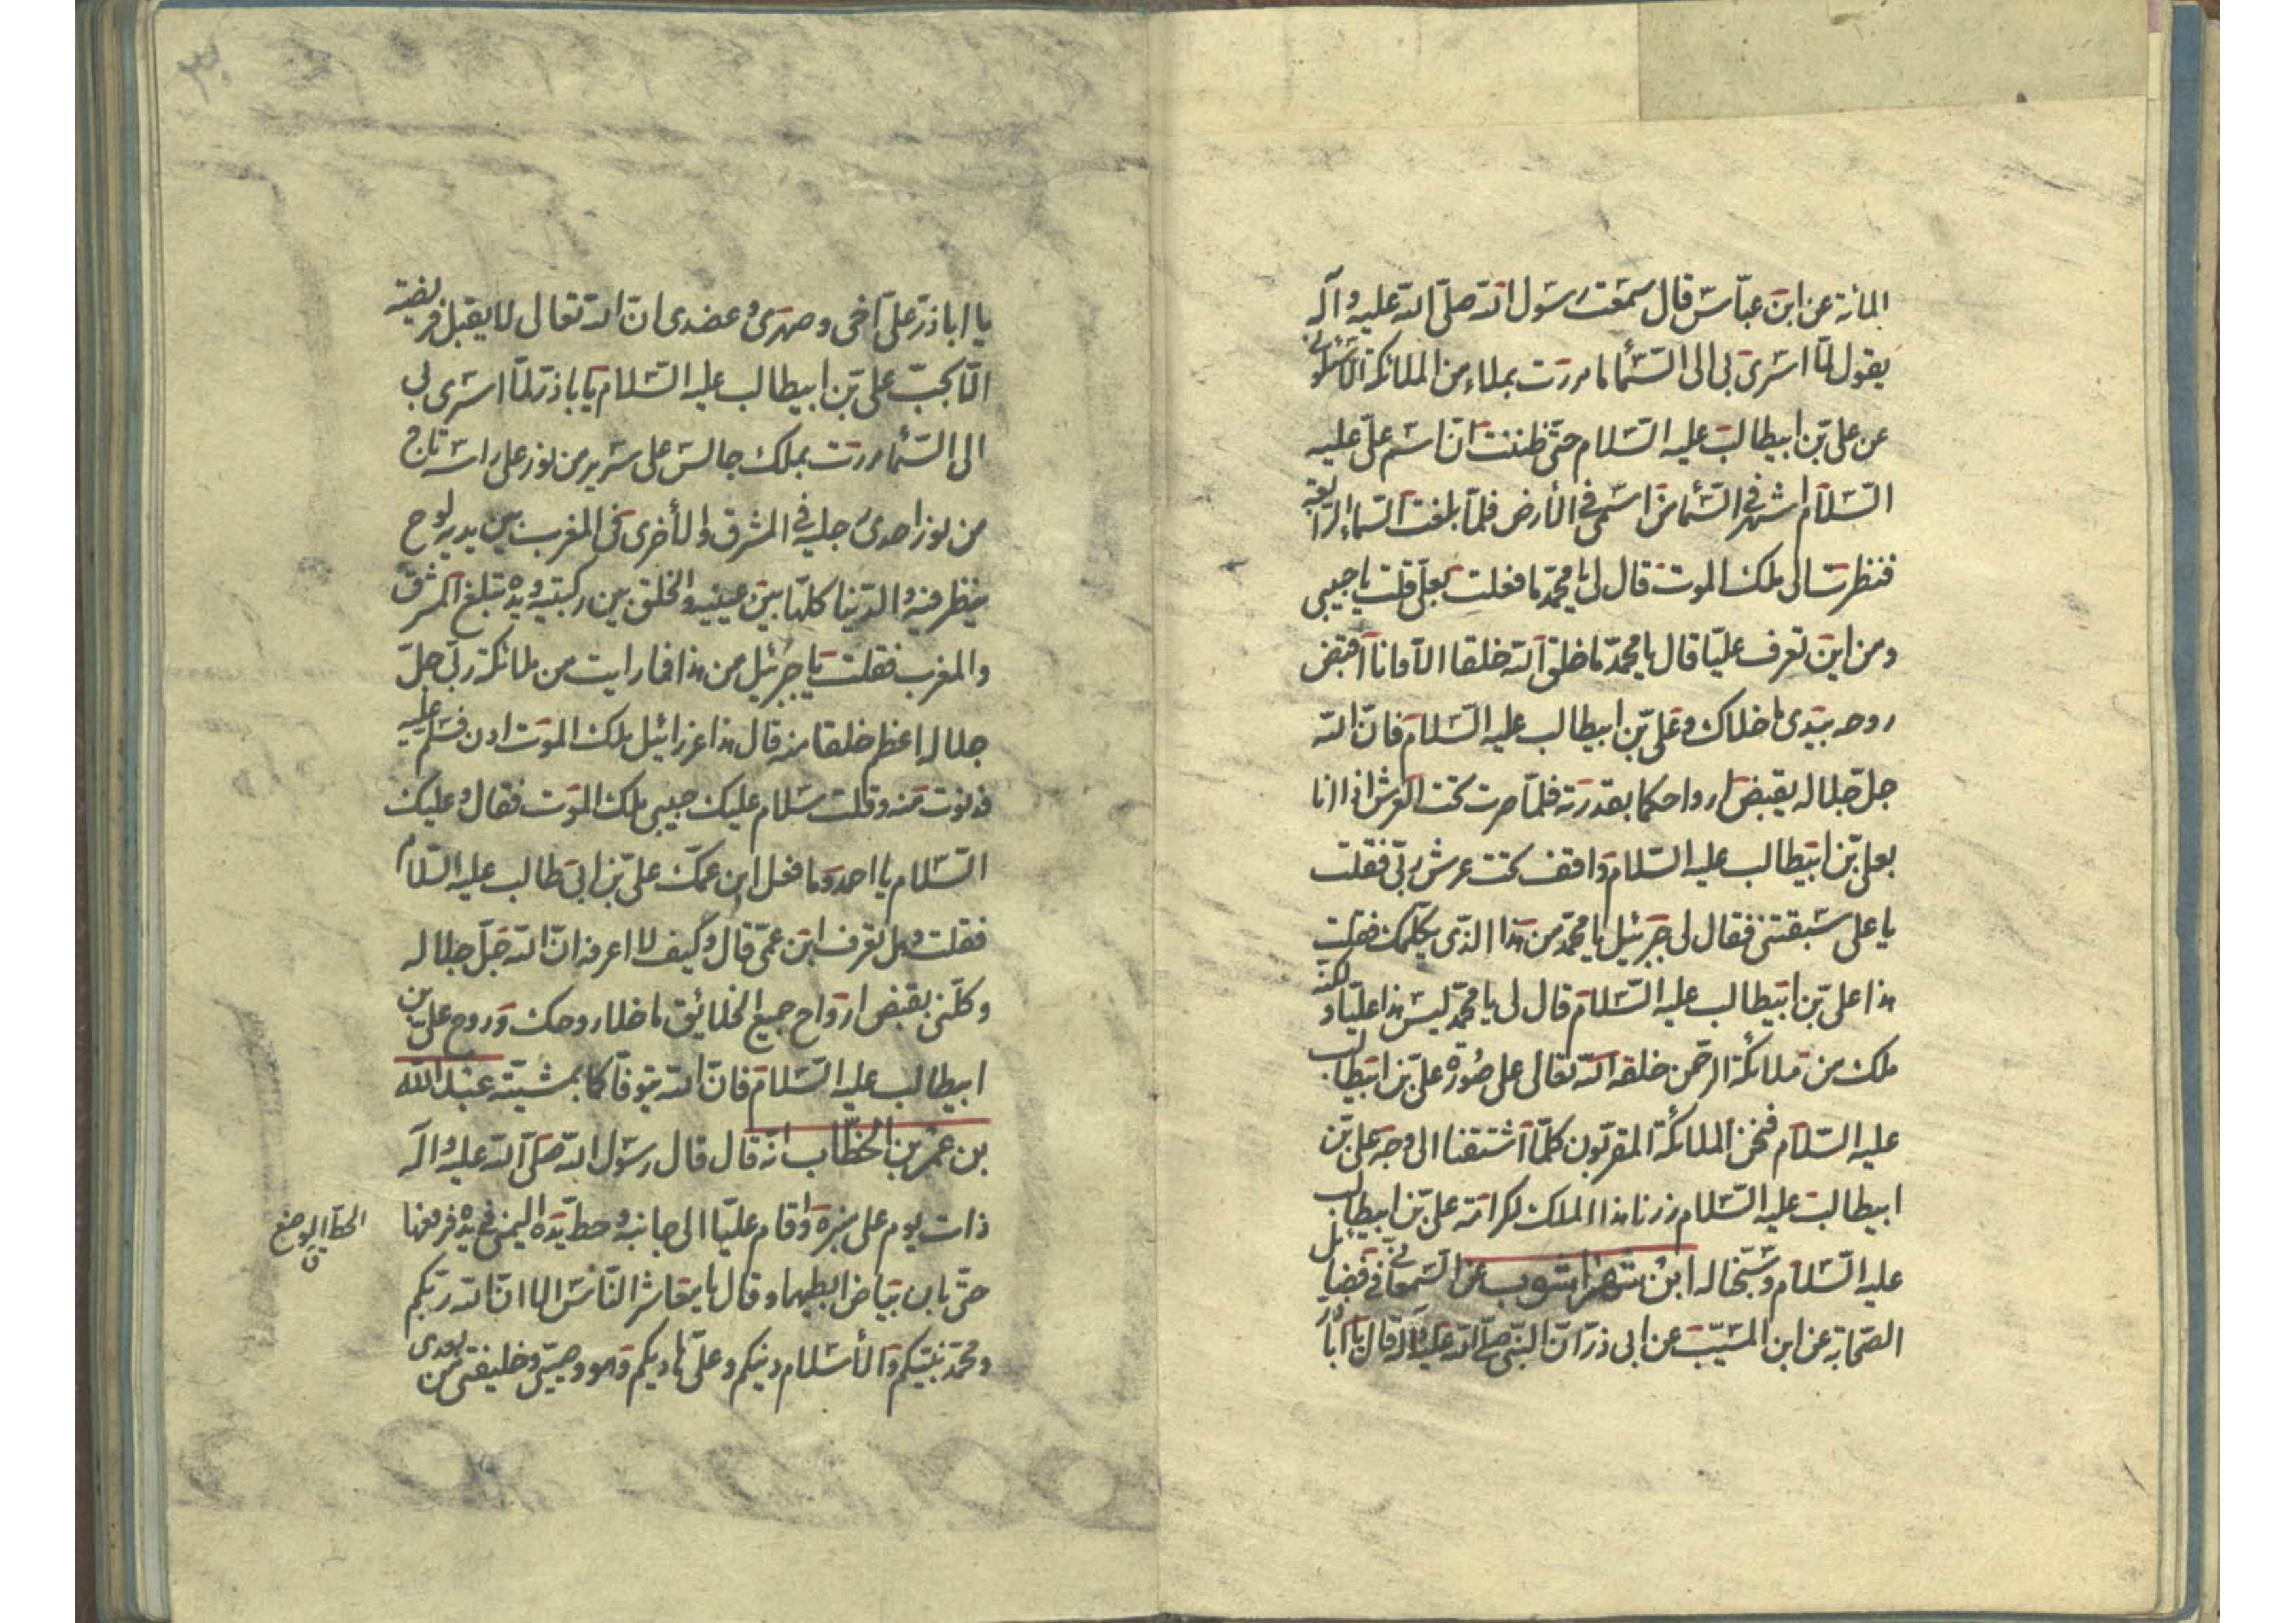 المائة عن ابن عباس قال سمعت رسول الله صلى الله عليه وآله
يقول لما اسرى بى الى السماء ما مررت بملاء من الملائكة الا سئلونى
عن على بن ابيطالب عليه السلام حتى ظننت ان اسم على عليه
السلام اشهر فى السماء من اسمى فى الأرض فلما بلغت السماء الرابعة
فنظرت الى ملك الموت قال لى يا محمد ما فعلت بعلى قلت يا حبيبى
ومن اين تعرف عليا قال يا محمد ما خلق الله خلقا الا وانا اقبض
روحه بيدى ما خلاك وعلى بن ابيطالب عليه السلام فان الله
جل جلاله يقبض ارواحكما بقدرته فلما صرت تحت العرش اذا انا
بعلى بن ابيطالب عليه السلام واقف تحت عرش ربى فقلت
يا على سبقتنى فقال لى جبرئيل يا محمد من هذا الذى يكلمك فقلت
هذا على بن ابيطالب عليه السلام قال لى يا محمد ليس هذا عليا ولكنه
ملك من ملائكة الرحمن خلقه الله تعالى على صورة على بن ابيطالب
عليه السلام فنحن الملائكة المقربون كلما اشتقنا الى وجه على بن
ابيطالب عليه السلام زرنا هذا الملك لكرامة على بن ابيطالب
عليه السلام وسبحاله ابن شهراشوب عن السمعانى فى فضايل
الصحابة عن ابن المسيب عن ابى ذر ان النبى صلى الله عليه وآله قال يا اباذر
يا اباذر على اخى وصهرى وعضدى ان الله تعالى لا يقبل فريضة
الا بحب على بن ابيطالب عليه السلام يا باذر لما اسرى بى
الى السماء مررت بملك جالس على سرير من نور على راسه تاج
من نور احدى رجليه فى المشرق والأخرى فى المغرب بين يديه لوح
ينظر فيه والدنيا كلها بين عينيه والخلق بين ركبتيه ويده تبلغ المشرق
والمغرب فقلت يا جبرئيل من هذا فما رايت من ملائكة ربى جل
جلاله اعظم خلقا منه قال هذا عزرائيل ملك الموت ادن فسلم عليه
فدنوت منه وقلت سلام عليك حبيبى ملك الموت فقال وعليك
السلام يا احمد وما فعل ابن عمك على بن ابى طالب عليه السلام
فقلت وهل تعرف ابن عمى قال وكيف لا اعرفه ان الله جل جلاله
وكلنى بقبض ارواح جميع الخلائق ما خلا روحك وروح على بن
ابيطالب عليه السلام فان الله يتوفاكما بمشيته عبد الله
بن عمر بن الخطاب انه قال قال رسول الله صلى الله عليه وآله
ذات يوم على منبره واقام عليا الى جانبه وحط يده اليمنى فى يده فرفعها
الحط الوضع
حتى بان بياض ابطيهما وقال يا معاشر الناس الا ان الله ربكم
ومحمد نبيكم والأسلام دينكم وعلى هاديكم وهو وصيى وخليفتى من بعدى